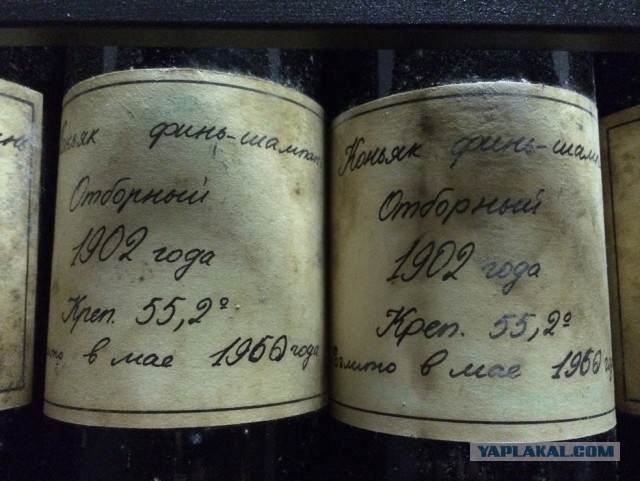 Коньяк финь-шампан
Отборный
1902 года
Креп. 55,2º
в мае 1960 года
Коньяк финь-шам
Отборный
1902 года
Креп. 55,2º
Розлито в мае 1960
YAPLAKAL.COM